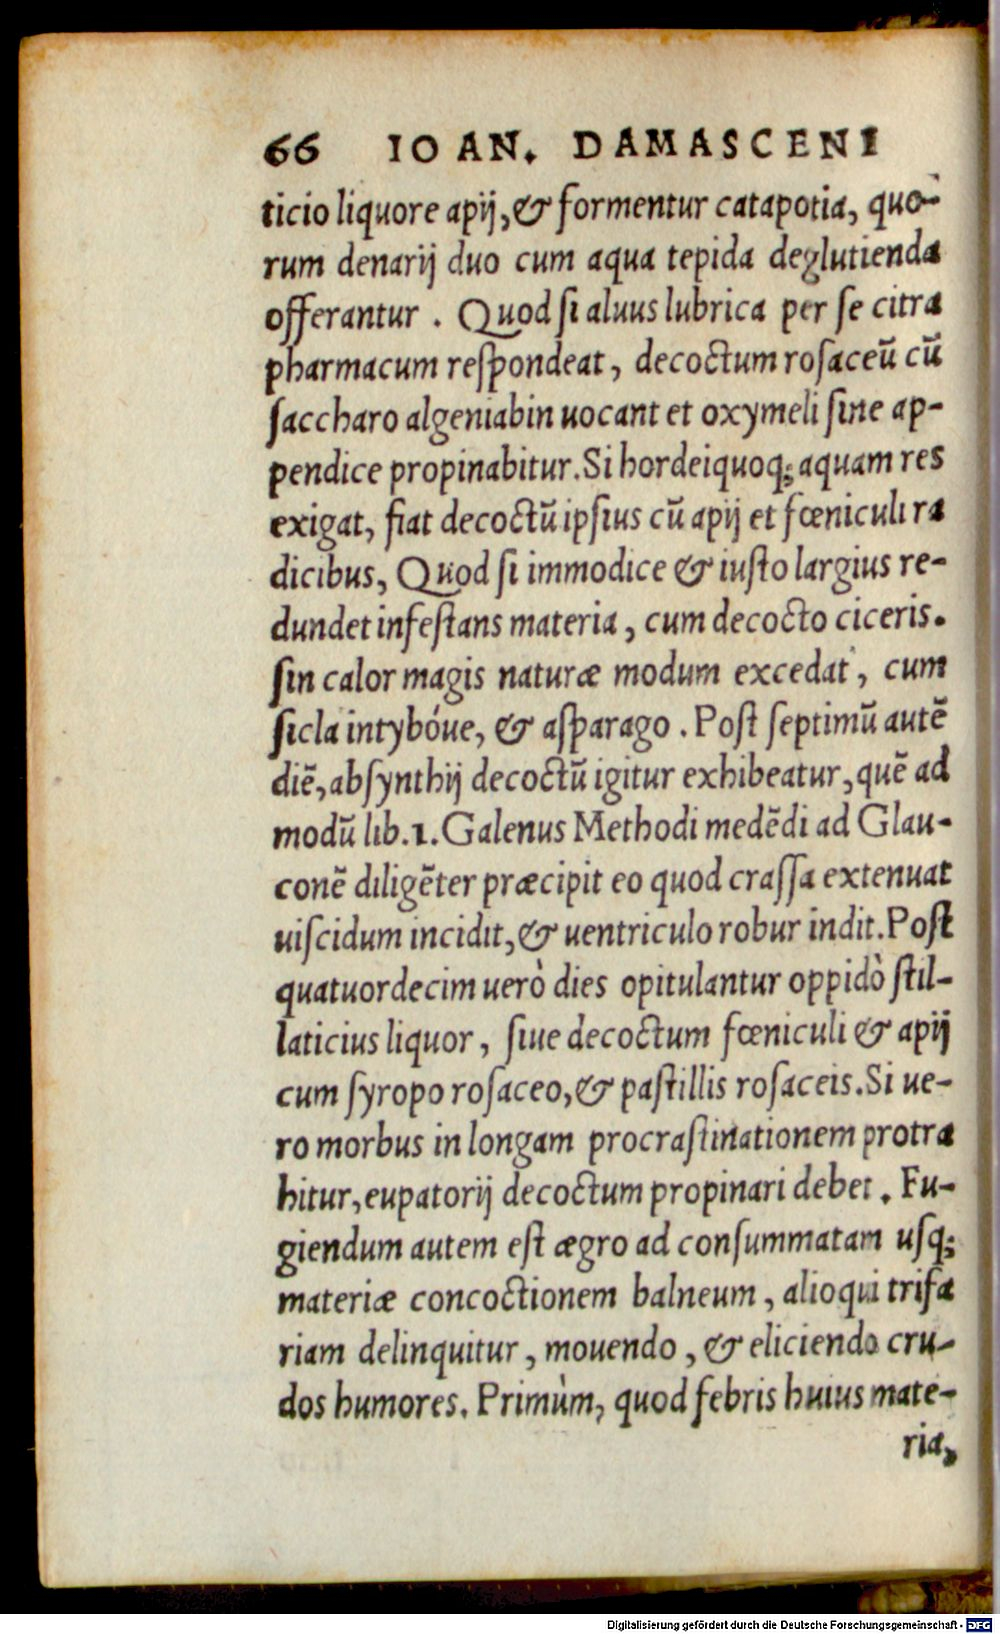 66 IOAN. DAMASCENI
ticio liquore apij, & formentur catapotia, quo-
rum denarij duo cum aqua tepida deglutienda
offerantur . Quod si aluus lubrica per se citra
pharmacum respondeat, decoctum rosaceū cū
saccharo algeniabin uocant et oxymeli sine ap-
pendice propinabitur. Si hordei quoq; aquam res
exigat, fiat decoctū ipsius cū apij et fœniculi ra
dicibus, Quod si immodice & iusto largius re-
dundet infestans materia, cum decocto ciceris.
sin calor magis naturæ modum excedat, cum
sicla intybóue, & asparago . Post septimū autē
diē, absynthij decoctū igitur exhibeatur, quē ad
modū lib.1. Galenus Methodi medēdi ad Glau-
conē diligēter præcipit eo quod crassa extenuat
uiscidum incidit, & uentriculo robur indit. Post
quatuordecim uerò dies opitulantur oppidò stil-
laticius liquor, siue decoctum fœniculi & apij
cum syropo rosaceo, & pastillis rosaceis. Si ue-
ro morbus in longam procrastinationem protra
hitur, eupatorij decoctum propinari debet . Fu-
giendum autem est ægro ad consummatam usq;
materiæ concoctionem balneum, alioqui trifa
riam delinquitur, mouendo, & eliciendo cru-
dos humores. Primùm, quod febris huius mate-
ria,
Digitalisierung gefördert durch die Deutsche Forschungsgemeinschaft - DFG